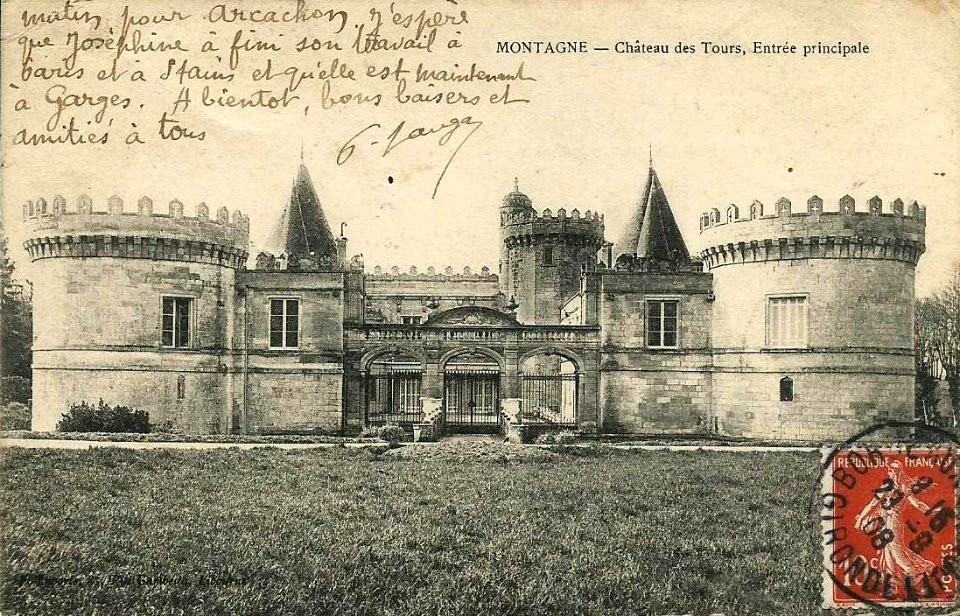 matin pour Arcachon J'espère
que Joséphine à fini son travail à
Paris et à Stains et qu'elle est maintenant
à Garges. A bientot, bons baisers et
amitiés à tous
MONTAGNE — Château des Tours, Entrée principale
REPUBLIQUE FRANÇAISE
10c POSTES
GIRONDE
08